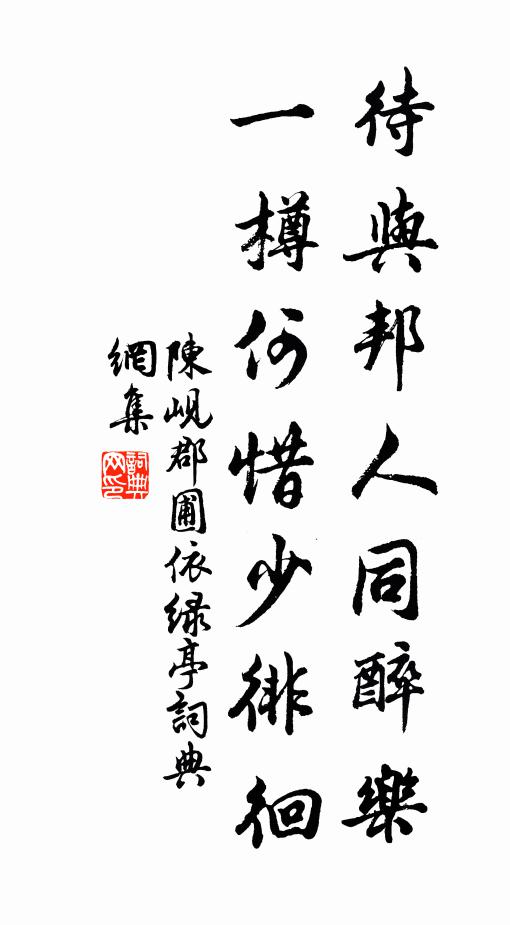 待與邦人同醉樂
一樽何惜少徘徊
陳峴郡圃依綠亭詞典
網集
詞典網印